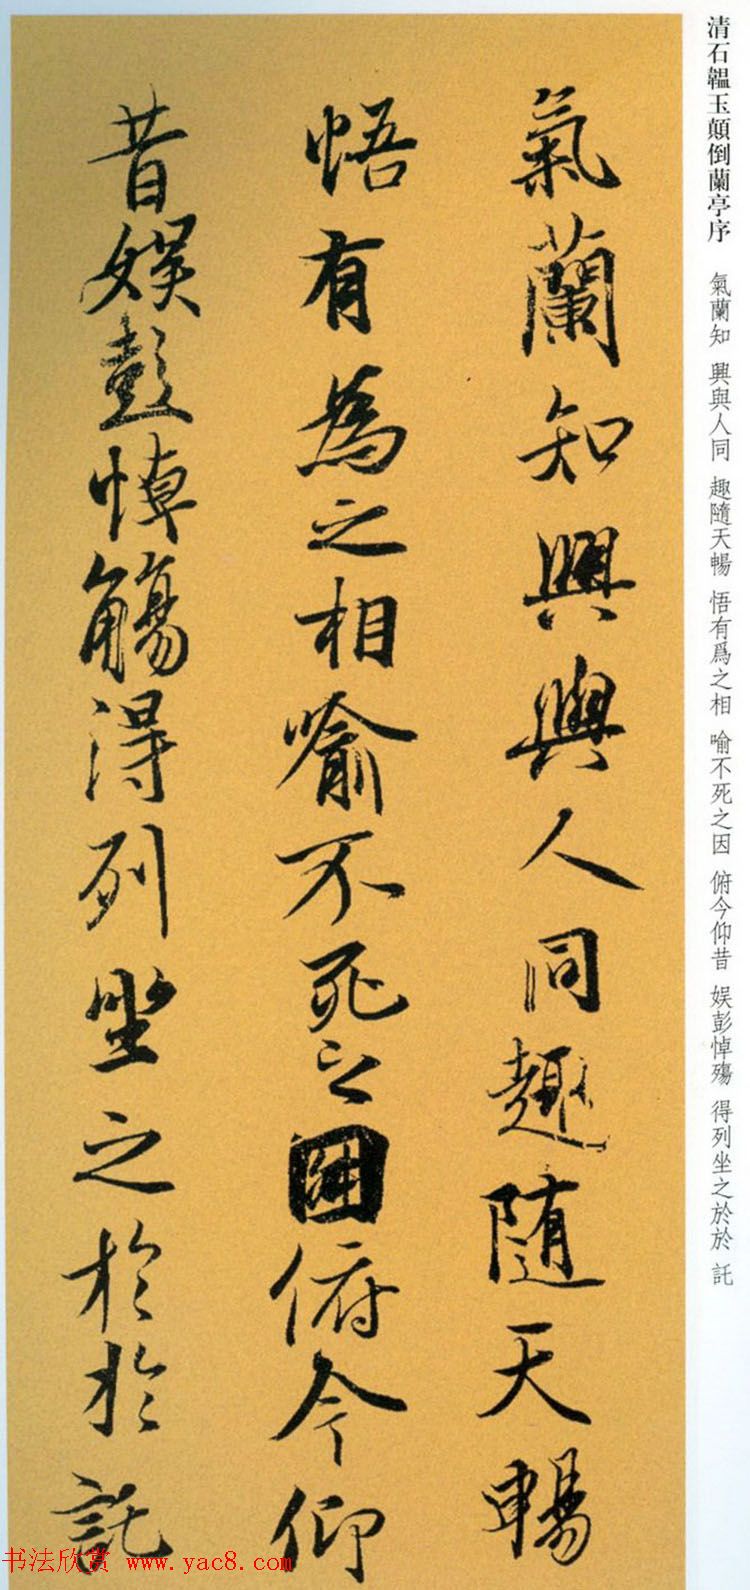 清石韞玉顛倒蘭亭序　氣蘭知　興與人同　趣隨天暢　悟有爲之相　喻不死之因　俯今仰昔　娱彭悼殤　得列坐之於於　託
氣蘭知興與人同趣隨天暢
悟有為之相喻不死之因俯今仰
昔娱彭悼觴得列坐之於於託
书法欣赏 www.yac8.com